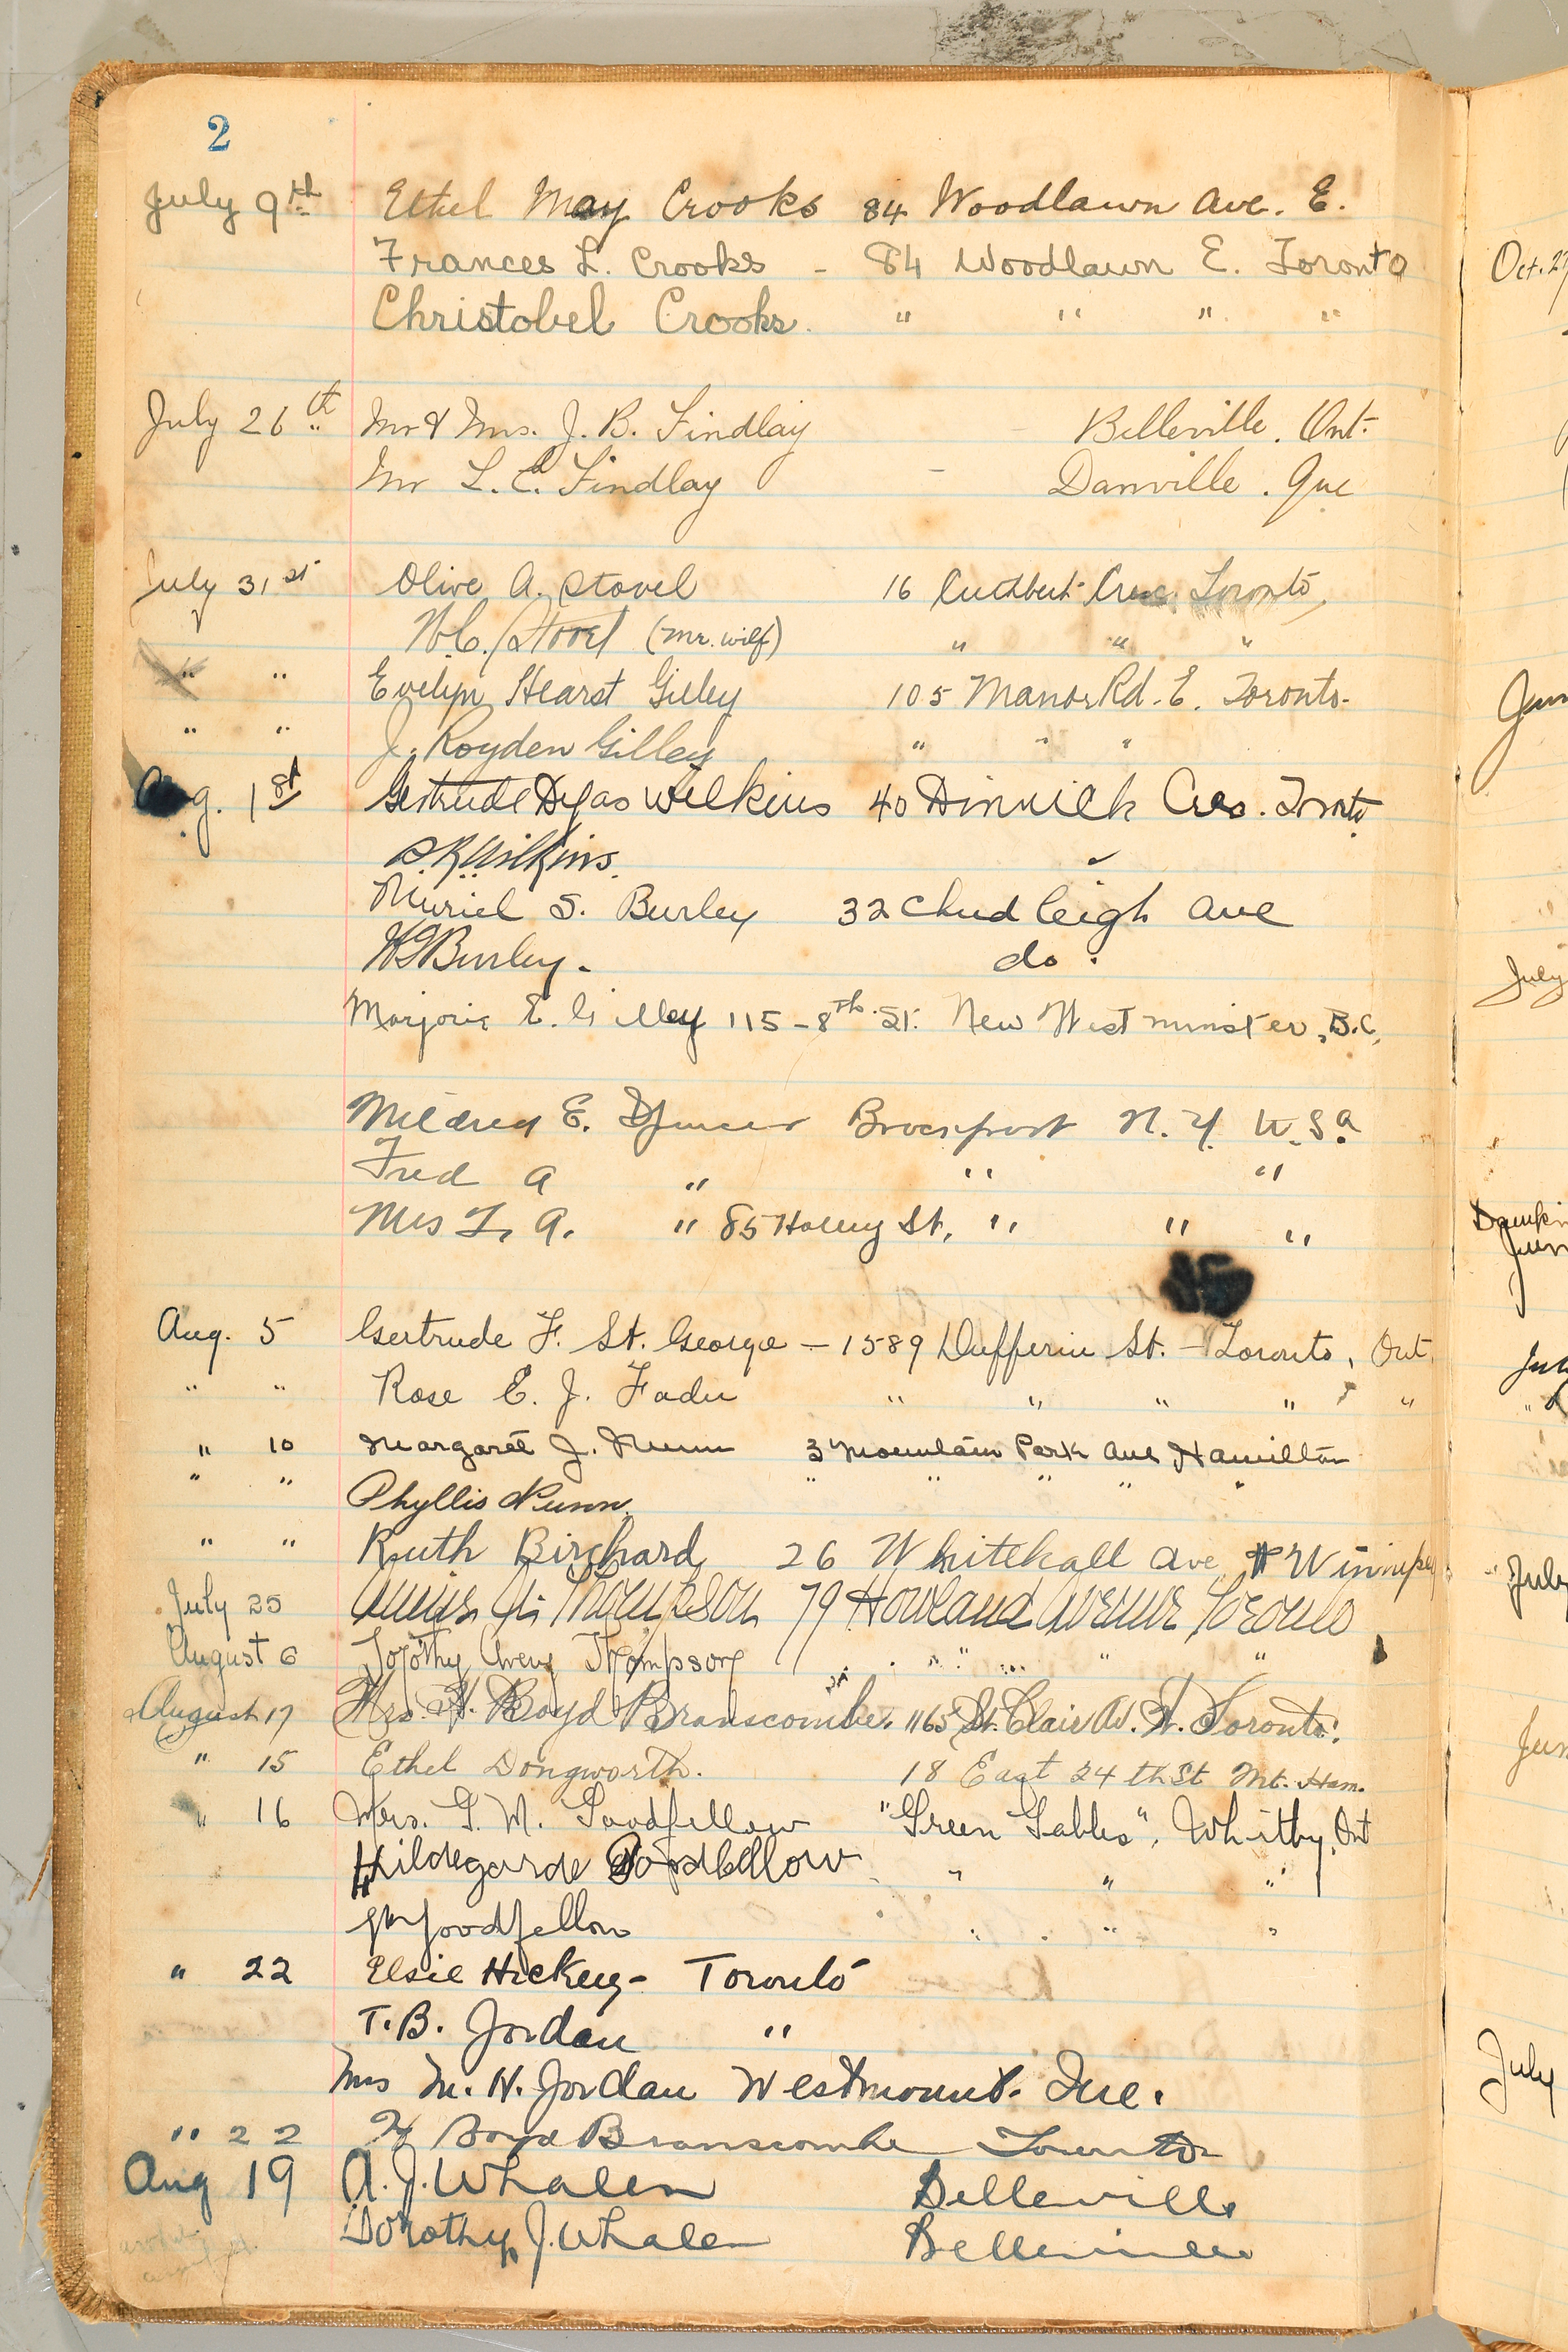 2
July 9th Ethel May Crooks 84 Woodlawn Ave. E.
Frances L. Crooks - 84 Woodlawn E. Toronto
Christobel Crooks. " " " "
July 26th Mr & Mrs. J. B. Findlay - Belleville. Ont.
Mr L. C. Findlay - Danville. Que
July 31st Olive A. Stovel 16 Cuthbert Cresc. Toronto,
W.C. Stovel (Mr. wilf) " " "
" " Evelyn Hearst Gilley 105 Manor Rd. E. Toronto.
" " J. Royden Gilley " " "
Aug. 1st Gertrude Dyas Wilkins 40 Dinnick Cres. Toronto
Wilkins.
Muriel S. Burley 32 Chudleigh Ave
Burley. do.
Marjorie E. Gilley 115-8th St. New Westminster, B.C.
Mildred E. Spencer Brockport N.Y. U.S.A.
Fred A " " "
Mrs F. A. " 85 Holley St, " " "
Aug. 5 Gertrude F. St. George - 1589 Dufferin St. - Toronto, Ont.
" " Rose E. J. Fader " " " " "
" 10 Margaret J. Nunn 3 Mountain Park Ave Hamilton
" " Phyllis Nunn. " " " " "
" " Ruth Birchard 26 Whitehall Ave, Winnipeg
July 25 Thompson 79 Howland Avenue Toronto
August 6 Dorothy Thompson " " " " "
August 17 Mrs. H. Boyd Branscombe. 1165 St. Clair Av. W. Toronto.
" 15 Ethel Dongworth. 18 East 24th St Mt. Ham.
" 16 Mrs. G. M. Goodfellow "Green Gables", Whitby, Ont
Hildegarde Goodfellow " " "
Goodfellow " " " "
" 22 Elsie Hickey - Toronto
T.B. Jordan "
Mrs M. H. Jordan Westmount. Que.
" 22 H Boyd Branscombe Toronto
Aug 19 A. J. Whalen Belleville
Dorothy J. Whalen Belleville
Oct. 27
July
July
July